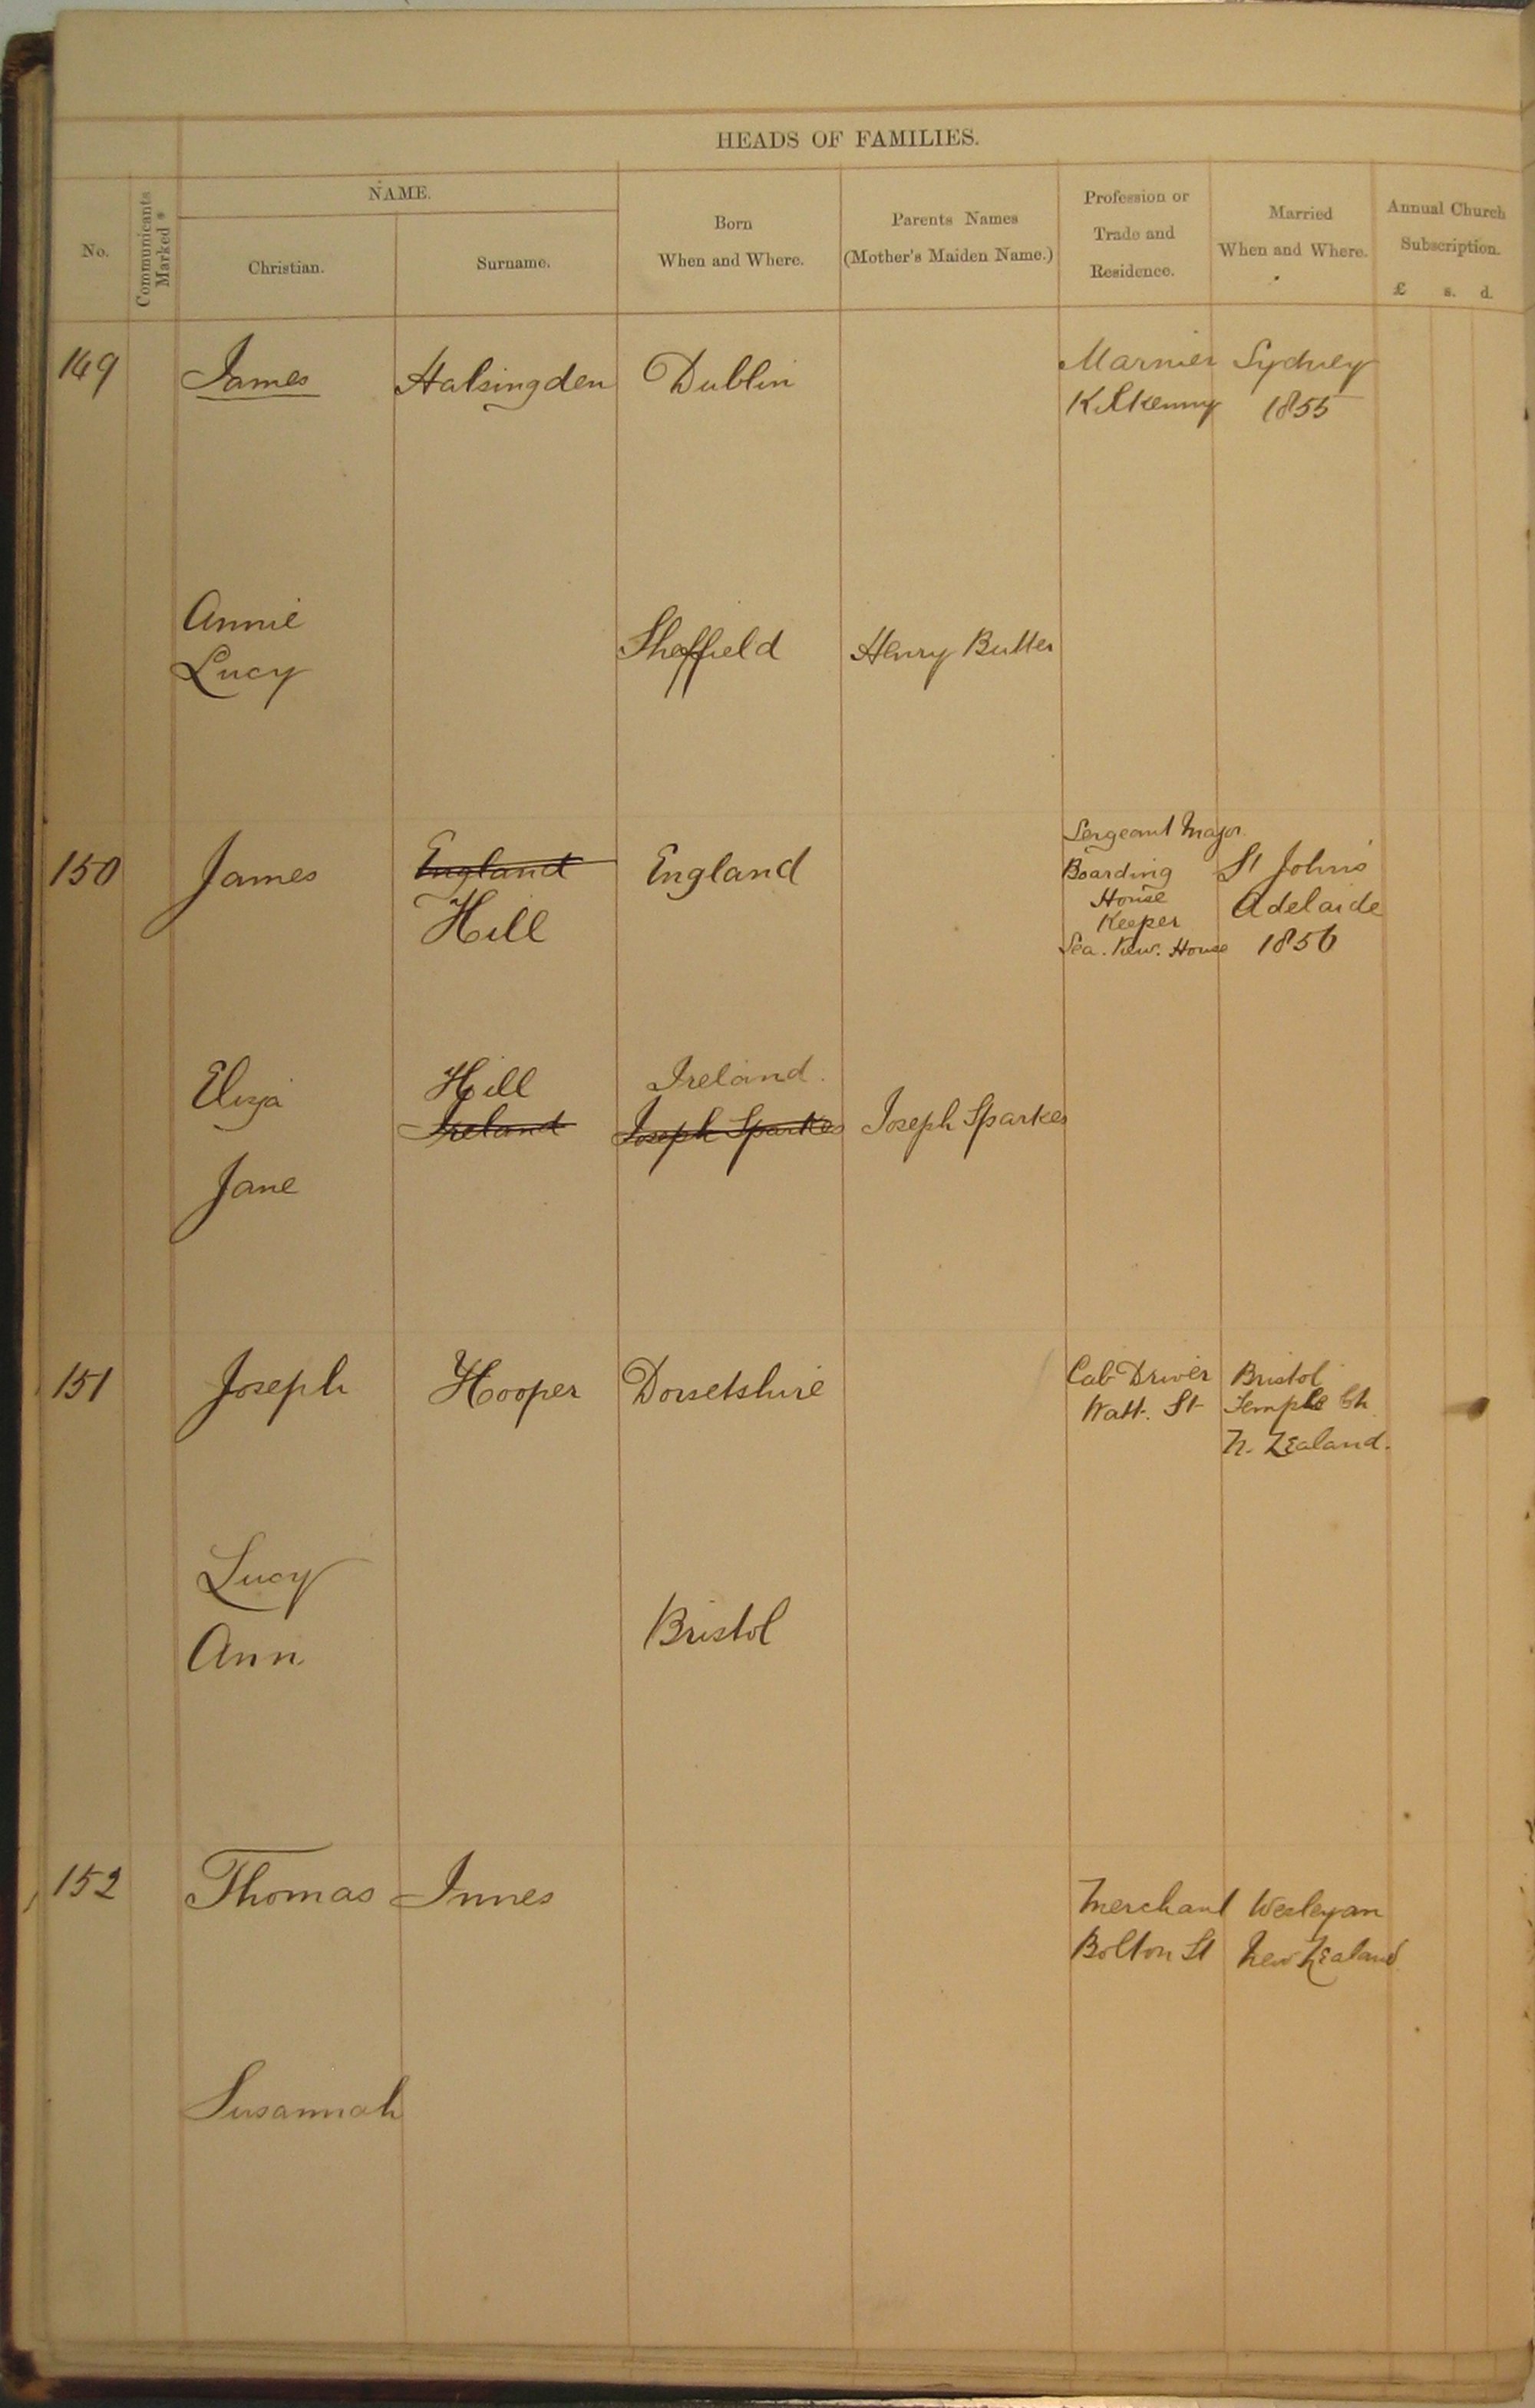 HEADS OF FAMILIES.
No.
Communicants Marked *
NAME.
Christian.
Surname.
Born
When and Where.
Parents Names
(Mother's Maiden Name.)
Profession or
Trade and
Residence.
Married
When and Where.
Annual Church
Subscription.
£ s. d.
149 James Halsingden Dublin Marnier Sydney
Kilkenny 1855
Annie
Lucy Sheffield Henry Butter
Sergeant Major
150 James England England Boarding St John's
Hill House Adelaide
Keeper
Sea. View. House 1856
Eliza Hill Ireland.
Ireland Joseph Sparkes Joseph Sparkes
Jane
151 Joseph Hooper Dorsetshire Cab Driver Bristol
Watt. St Temple Ch
N. Zealand.
Lucy
Ann Bristol
152 Thomas Innes Merchant Wesleyan
Bolton St New Zealand
Susannah